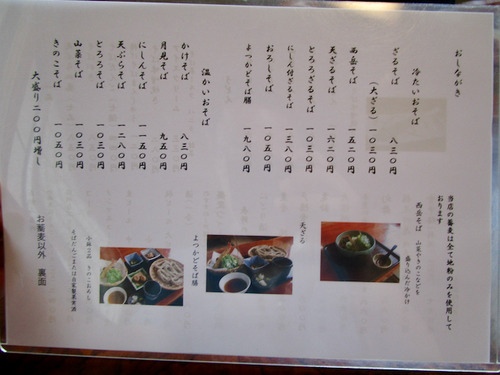 おしながき
冷たいおそば
ざるそば 八三〇円
(大ざる) 一〇三〇円
西岳そば 一五二〇円
天ざるそば 一六二〇円
とろろざるそば 一〇三〇円
にしん付ざるそば 一三八〇円
おろしそば 一〇五〇円
よつかどそば膳 一九八〇円
温かいおそば
かけそば 八三〇円
月見そば 九五〇円
にしんそば 一一五〇円
天ぷらそば 一二八〇円
とろろそば 一〇三〇円
山菜そば 一〇三〇円
きのこそば 一〇五〇円
大盛り二〇〇円増し
当店の蕎麦は全て地粉のみを使用して
おります
西岳そば 山菜やきのこなどを
盛り込んだ冷かけ
天ざる
よつかどそば膳
小鉢三品 きのこおろし
そばだんごまたは自家製果実酒
お蕎麦以外 裏面